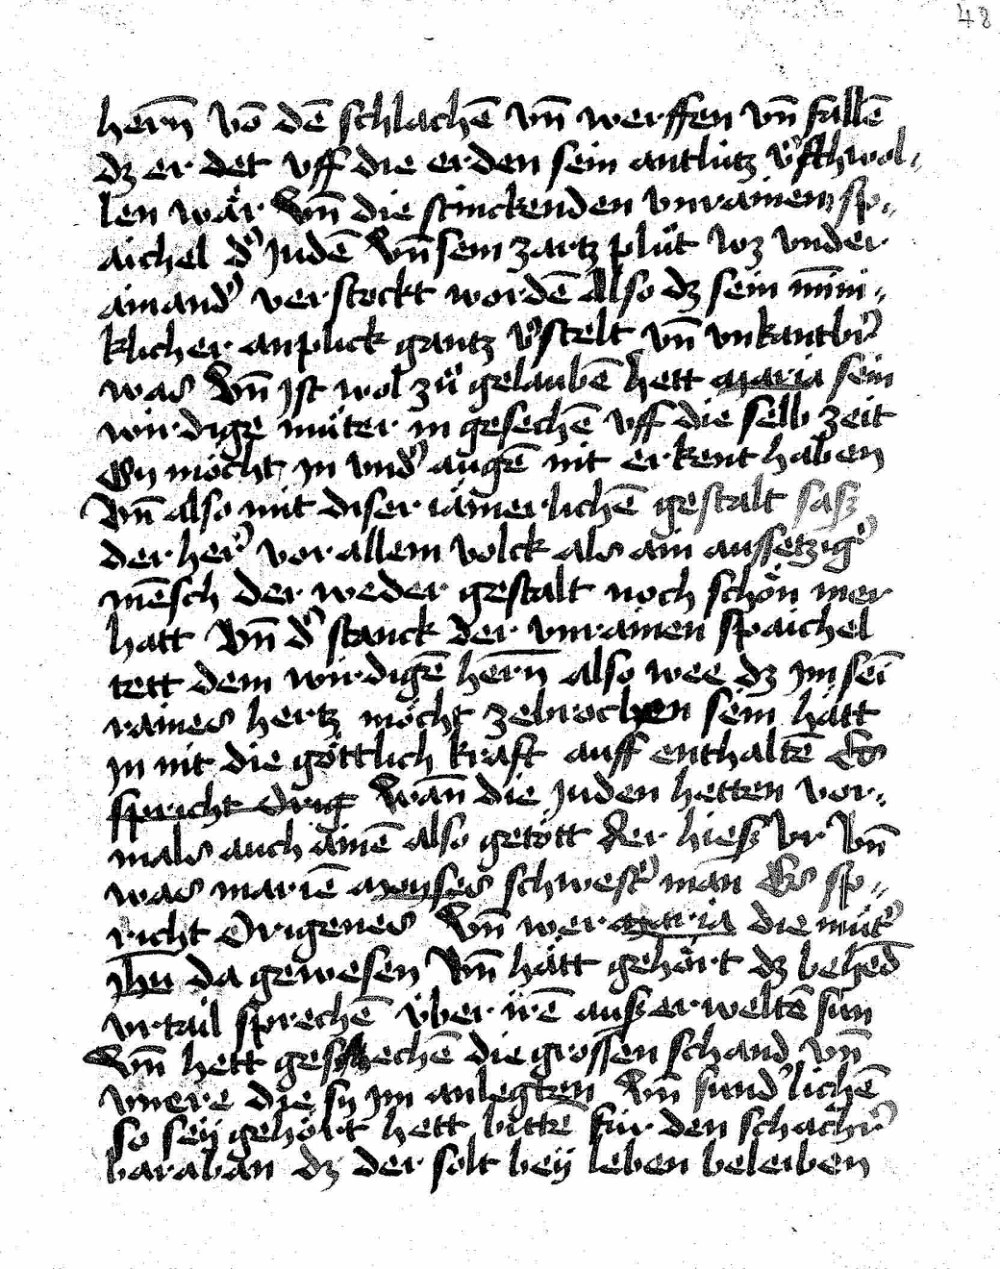 48
hern̄ vō dē schlachē vn̄ werffen vn̄ fallē
dz er det vff die erden sein antlütz v̾schwol-
len wär Vn̄ die stinckenden vnrainen sp-
aichel d̾ Judē Vn̄ sein zartz plůt wz vnder
ainand̾ verstockt wordē Also dz sein mīni-
klicher anplick gantz v̾stelt vn̄ vnkantb̾
was Vn̄ ist wol zů gelaubē hett maria sein
wirdige můter in gesechē vff die selb zeit
Sy möcht in vnd̾ augē nit erkent haben
Vn̄ also mit diser iämerlichē gestalt sasz
der her̾ vor allem volck als ain aussetzig̾
mēsch der weder gestalt noch schön mer
hatt Vn̄ d̾ stanck der vnrainen spaichel
tett dem wirdigē hern̄ also wee dz im sei̅
raines hertz möcht zebrochen sein hätt
in nit die göttlich kraft auff enthaltē Es
spricht Orig Wan̄ die Juden hetten vor-
mals auch ainē also getött der hiesz Vr Vn̄
was mariē moyses schwest̾ man Es sp-
richt Origenes Vn̄ wer maria die můt̾
ihū da gewesen Vn̄ hätt gehört dz behēd
vrtail sprechē über irē auszerweltē sun
Vn̄ hett gesechē die grossen schand vn̄
vnere die sy im anlegten Vn̄ sund̾lichē
so seÿ gehört hett bittē für den schach̾
baraban dz der solt beÿ leben beleiben